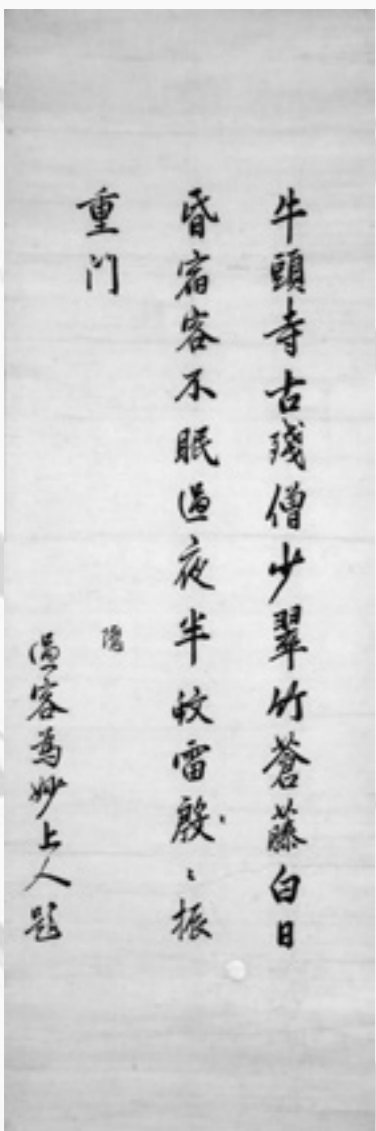 牛頭寺古殘僧少翠竹蒼藤白日
昏宿客不眠過夜半蚊雷殷〻振
重门
過客為妙上人題